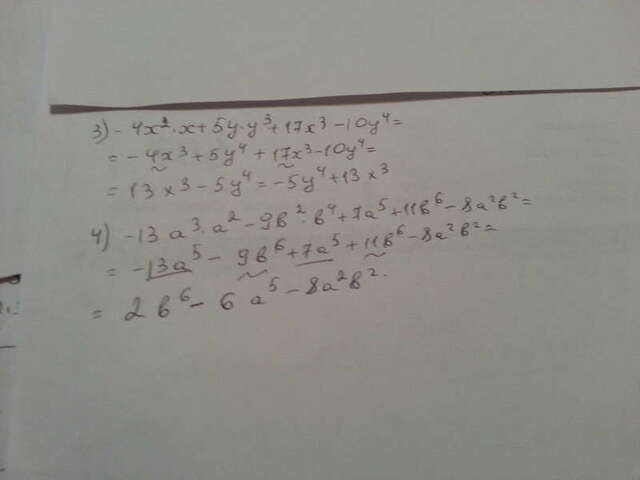 3) -4x²·x+5y·y³+17x³-10y⁴=
=-4x³+5y⁴+17x³-10y⁴=
=13x³-5y⁴=-5y⁴+13x³
4) -13a³·a²-9b²·b⁴+7a⁵+11b⁶-8a²b²=
=-13a⁵-9b⁶+7a⁵+11b⁶-8a²b²=
=2b⁶-6a⁵-8a²b².